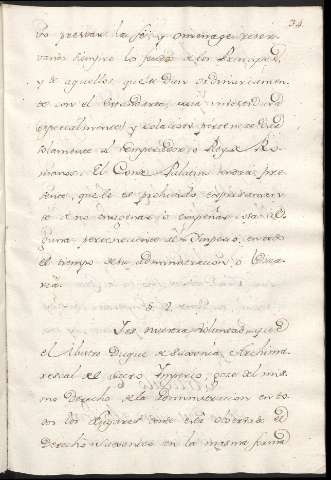 34
prestar la fe, y omenage reser-
vando siempre los feudos de los Principes,
y de aquellos que se dan ordinariamen-
te con el Estandarte, cuia investidura
especialmente y colacion pertenece
solamente al Emperador o Rey de Ro-
manos. El Conde Palatino tendrá pre-
sente, que le es prohivido expresamen-
te de no enagenar, o empeñar cosa al-
guna perteneciente al Imperio, en todo
el tiempo de su administracion o
§ 2.
Es nuestra voluntad que
el Ilustre Duque de Saxonia, Archima-
rescal del Sacro Imperio, goze del mis-
mo Derecho de la administracion en to-
dos los Lugares donde está observado el
Derecho Saxonico en la misma forma